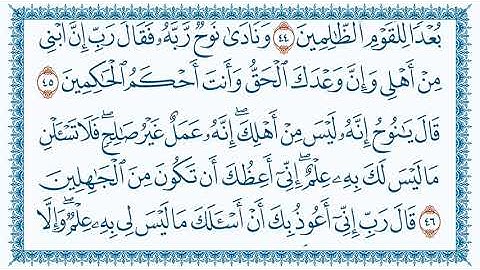 بُعْدًا لِّلْقَوْمِ الظَّٰلِمِينَ ٤٤ وَنَادَىٰ نُوحٌ رَّبَّهُۥ فَقَالَ رَبِّ إِنَّ ٱبْنِى
مِنْ أَهْلِى وَإِنَّ وَعْدَكَ ٱلْحَقُّ وَأَنتَ أَحْكَمُ ٱلْحَٰكِمِينَ ٤٥
قَالَ يَٰنُوحُ إِنَّهُۥ لَيْسَ مِنْ أَهْلِكَ ۖ إِنَّهُۥ عَمَلٌ غَيْرُ صَٰلِحٍ ۖ فَلَا تَسْـَٔلْنِ
مَا لَيْسَ لَكَ بِهِۦ عِلْمٌ ۖ إِنِّىٓ أَعِظُكَ أَن تَكُونَ مِنَ ٱلْجَٰهِلِينَ
٤٦ قَالَ رَبِّ إِنِّىٓ أَعُوذُ بِكَ أَنْ أَسْـَٔلَكَ مَا لَيْسَ لِى بِهِۦ عِلْمٌ ۖ وَإِلَّا